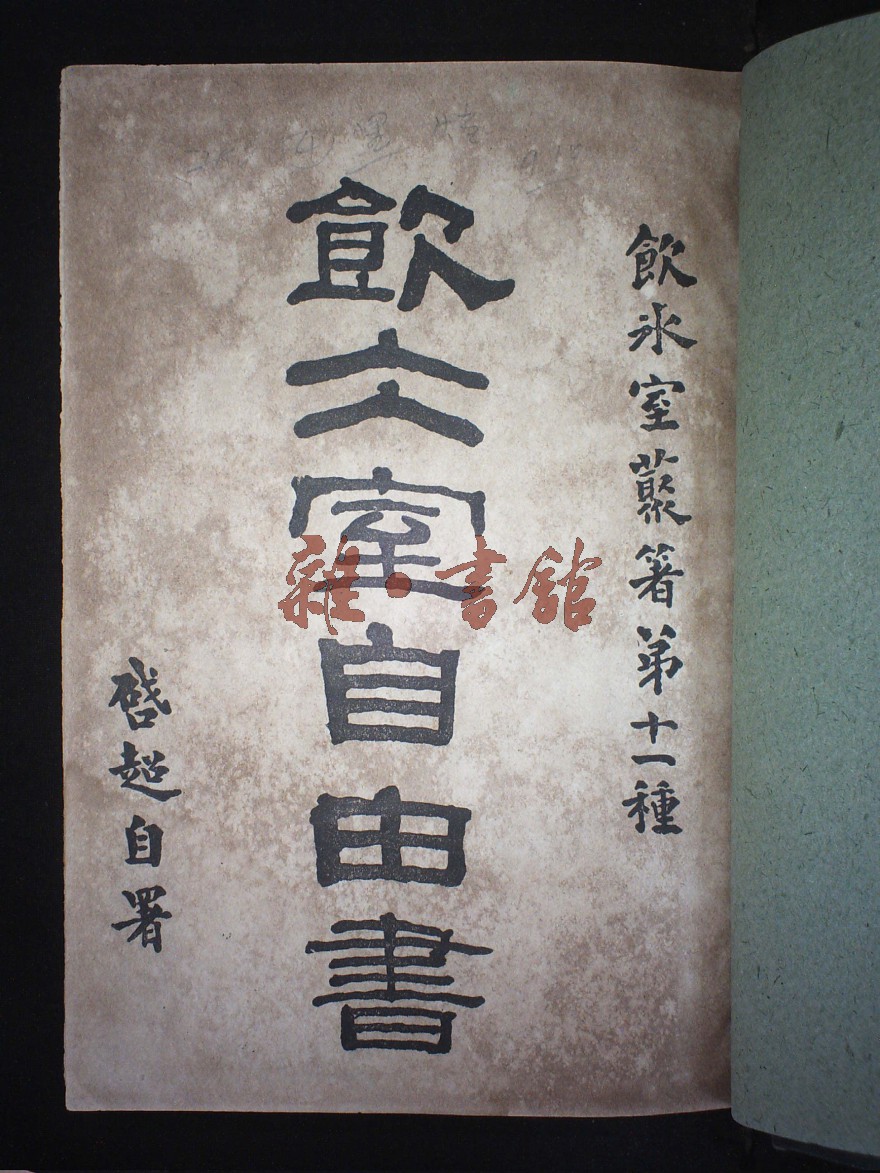 飲冰室藂箸第十一種
飲仌室自由書
啓超自署
雜·書館